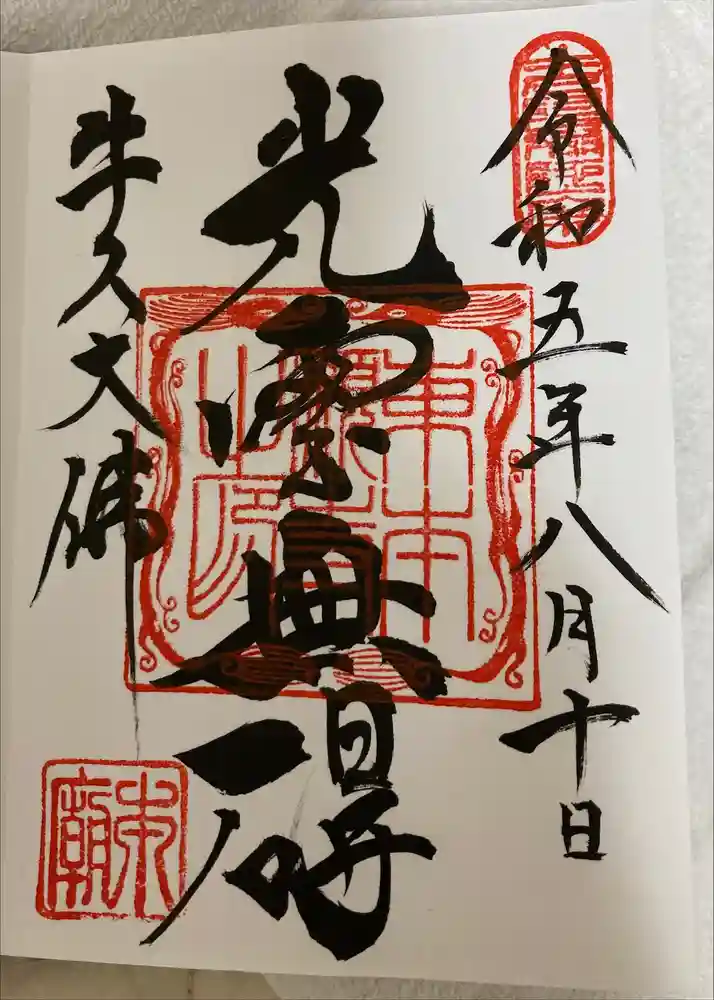 令和五年八月十日
光雲無碍
牛久大佛
東本
願寺
之印